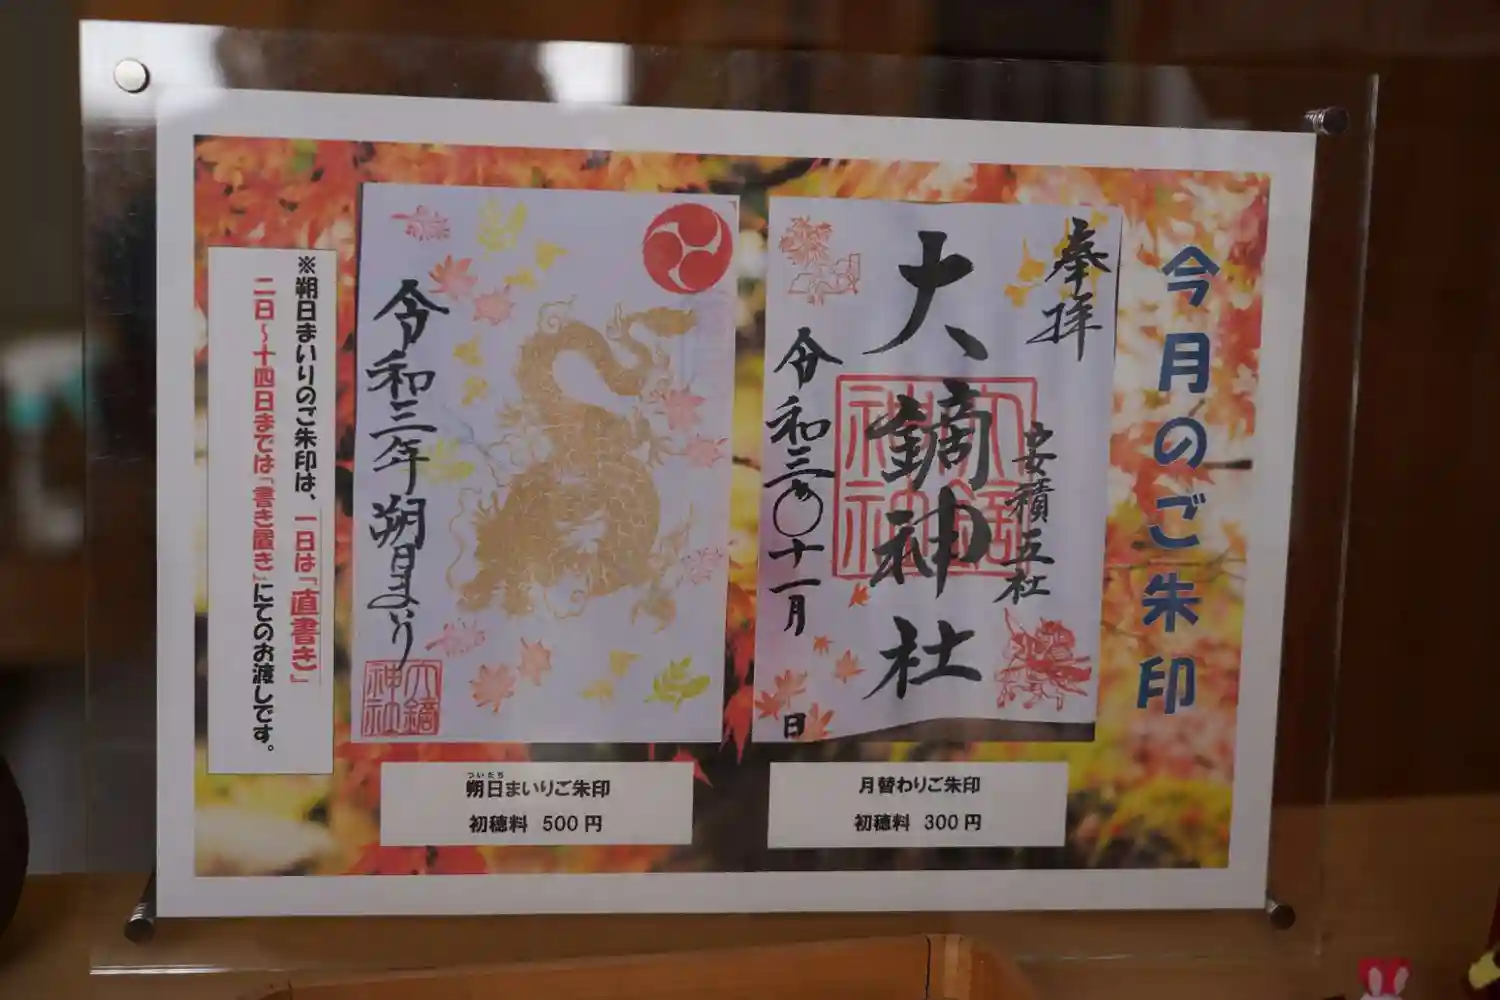 今月のご朱印
奉拝
安積五社
大鏑神社
令和三年十一月
日
月替わりご朱印
初穂料 300円
令和三年朔日まいり
大鏑神社
ついたち
朔日まいりご朱印
初穂料 500円
※朔日まいりのご朱印は、一日は「直書き」
二日～十四日までは「書き置き」にてのお渡しです。